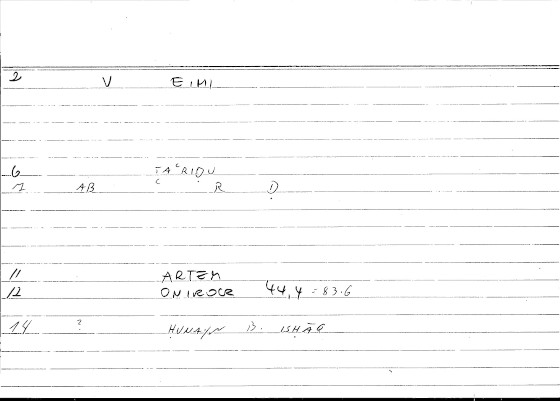 2 V EIMI
6 TAʿRIḌU
7 AB R Ḍ
11 ARTEM
12 ONIROCR 44,4 = 83.6
14 ? ḤUNAYN B. ISḤĀQ